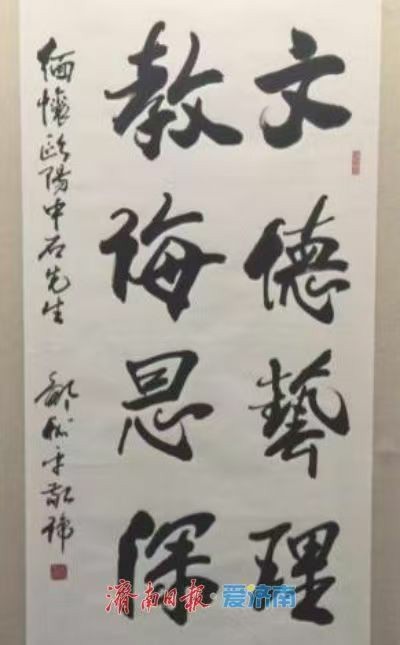 文德藝理
教誨恩深
緬懷歐陽中石先生
濟南日報·爱济南